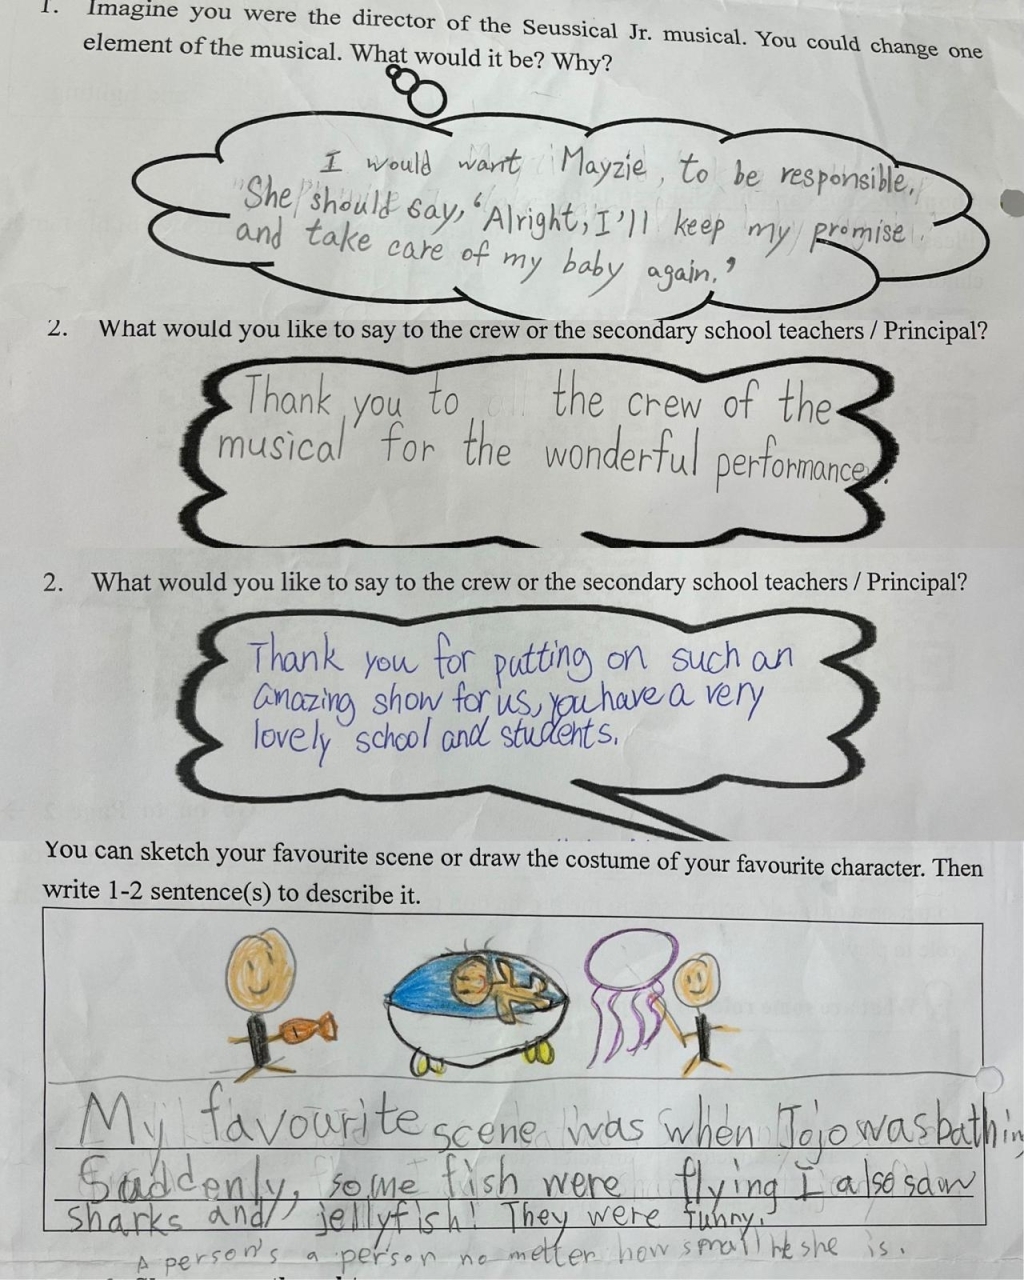 1. Imagine you were the director of the Seussical Jr. musical. You could change one
element of the musical. What would it be? Why?
I would want Mayzie, to be responsible,
"She" should say, 'Alright, I'll keep my promise
and take care of my baby again.'
2. What would you like to say to the crew or the secondary school teachers / Principal?
Thank you to the crew of the
musical for the wonderful performance.
2. What would you like to say to the crew or the secondary school teachers / Principal?
Thank you for putting on such an
amazing show for us, you have a very
lovely school and students.
You can sketch your favourite scene or draw the costume of your favourite character. Then
write 1-2 sentence(s) to describe it.
My favourite scene was when Jojo was bathing
Suddenly, some fish were flying I also saw
sharks and jellyfish! They were funny.
A person's a person no metter how small he she is.